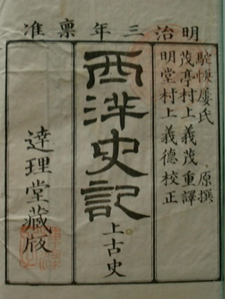 明治三年稟准
原撰
茂亭村上義茂重譯
明堂村上義德校正
西洋史記
上古史
達理堂藏版